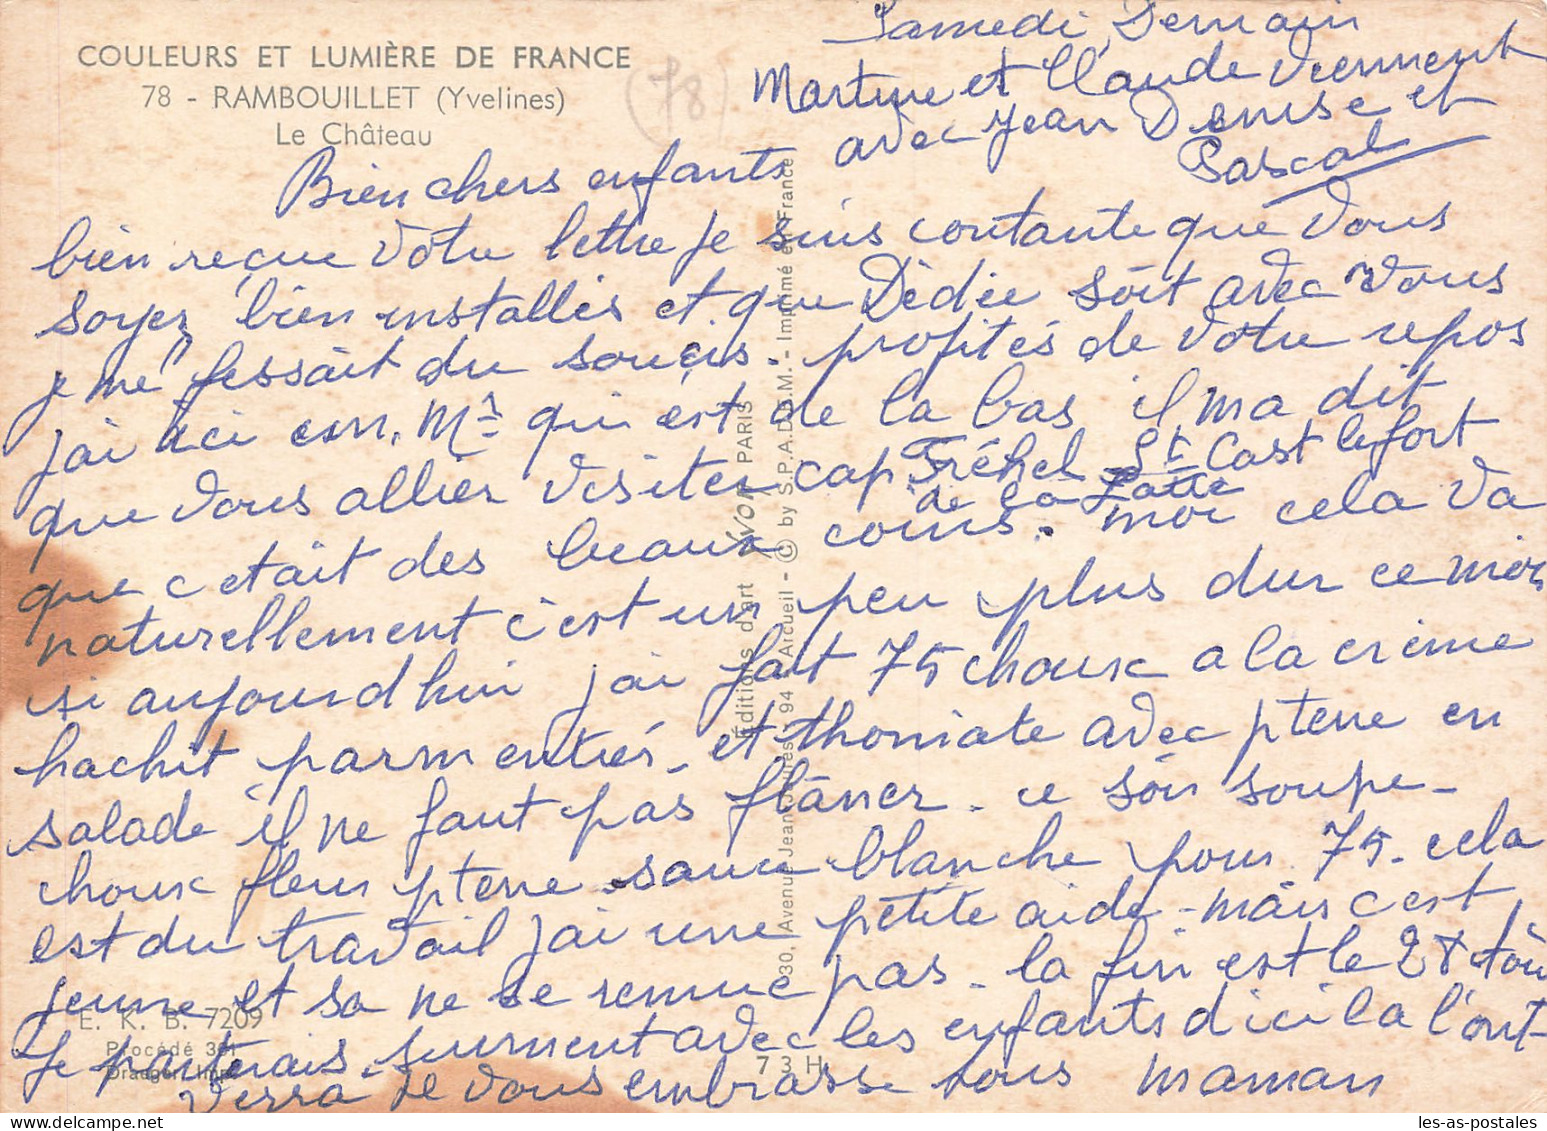 COULEURS ET LUMIÈRE DE FRANCE
78 - RAMBOUILLET (Yvelines)
Le Château
(78)
Samedi, Demain
Martine et Claude viennent
avec Jean Denise et
Pascal
Bien chers enfants
bien reçue votre lettre je suis contante que vous
soyez bien installés et que Dédée soit avec vous
je me fessait du soucis. profités de votre repos
jai ici un Mr qui est de la bas il ma dit
que vous allier visiter cap Fréhel St Cast le fort
de la Latte
que c etait des beaux coins. moi cela va
naturellement c'est un peu plus dur ce mois
si aujourd hui jai fait 75 choux a la crème
hachit parmentiés et thomate avec pterre en
salade il ne faut pas flâner - ce soir soupe -
choux fleur pterre sauce blanche pour 75 - cela
est du travail jai une petite aide - mais c est
jeune et sa ne se remue pas - la fin est le 28
Je partirais surment avec les enfants d ici la l'ont
verra Je vous embrasse tous maman
Éditions d'art YVON PARIS
30, Avenue Jean Jaurès 94 Arcueil - © by S.P.A.D.E.M. - Imprimé en France
E. K. B. 7209
Procédé 301
Draeger, Imp.
7 3 H
les-as-postales.com